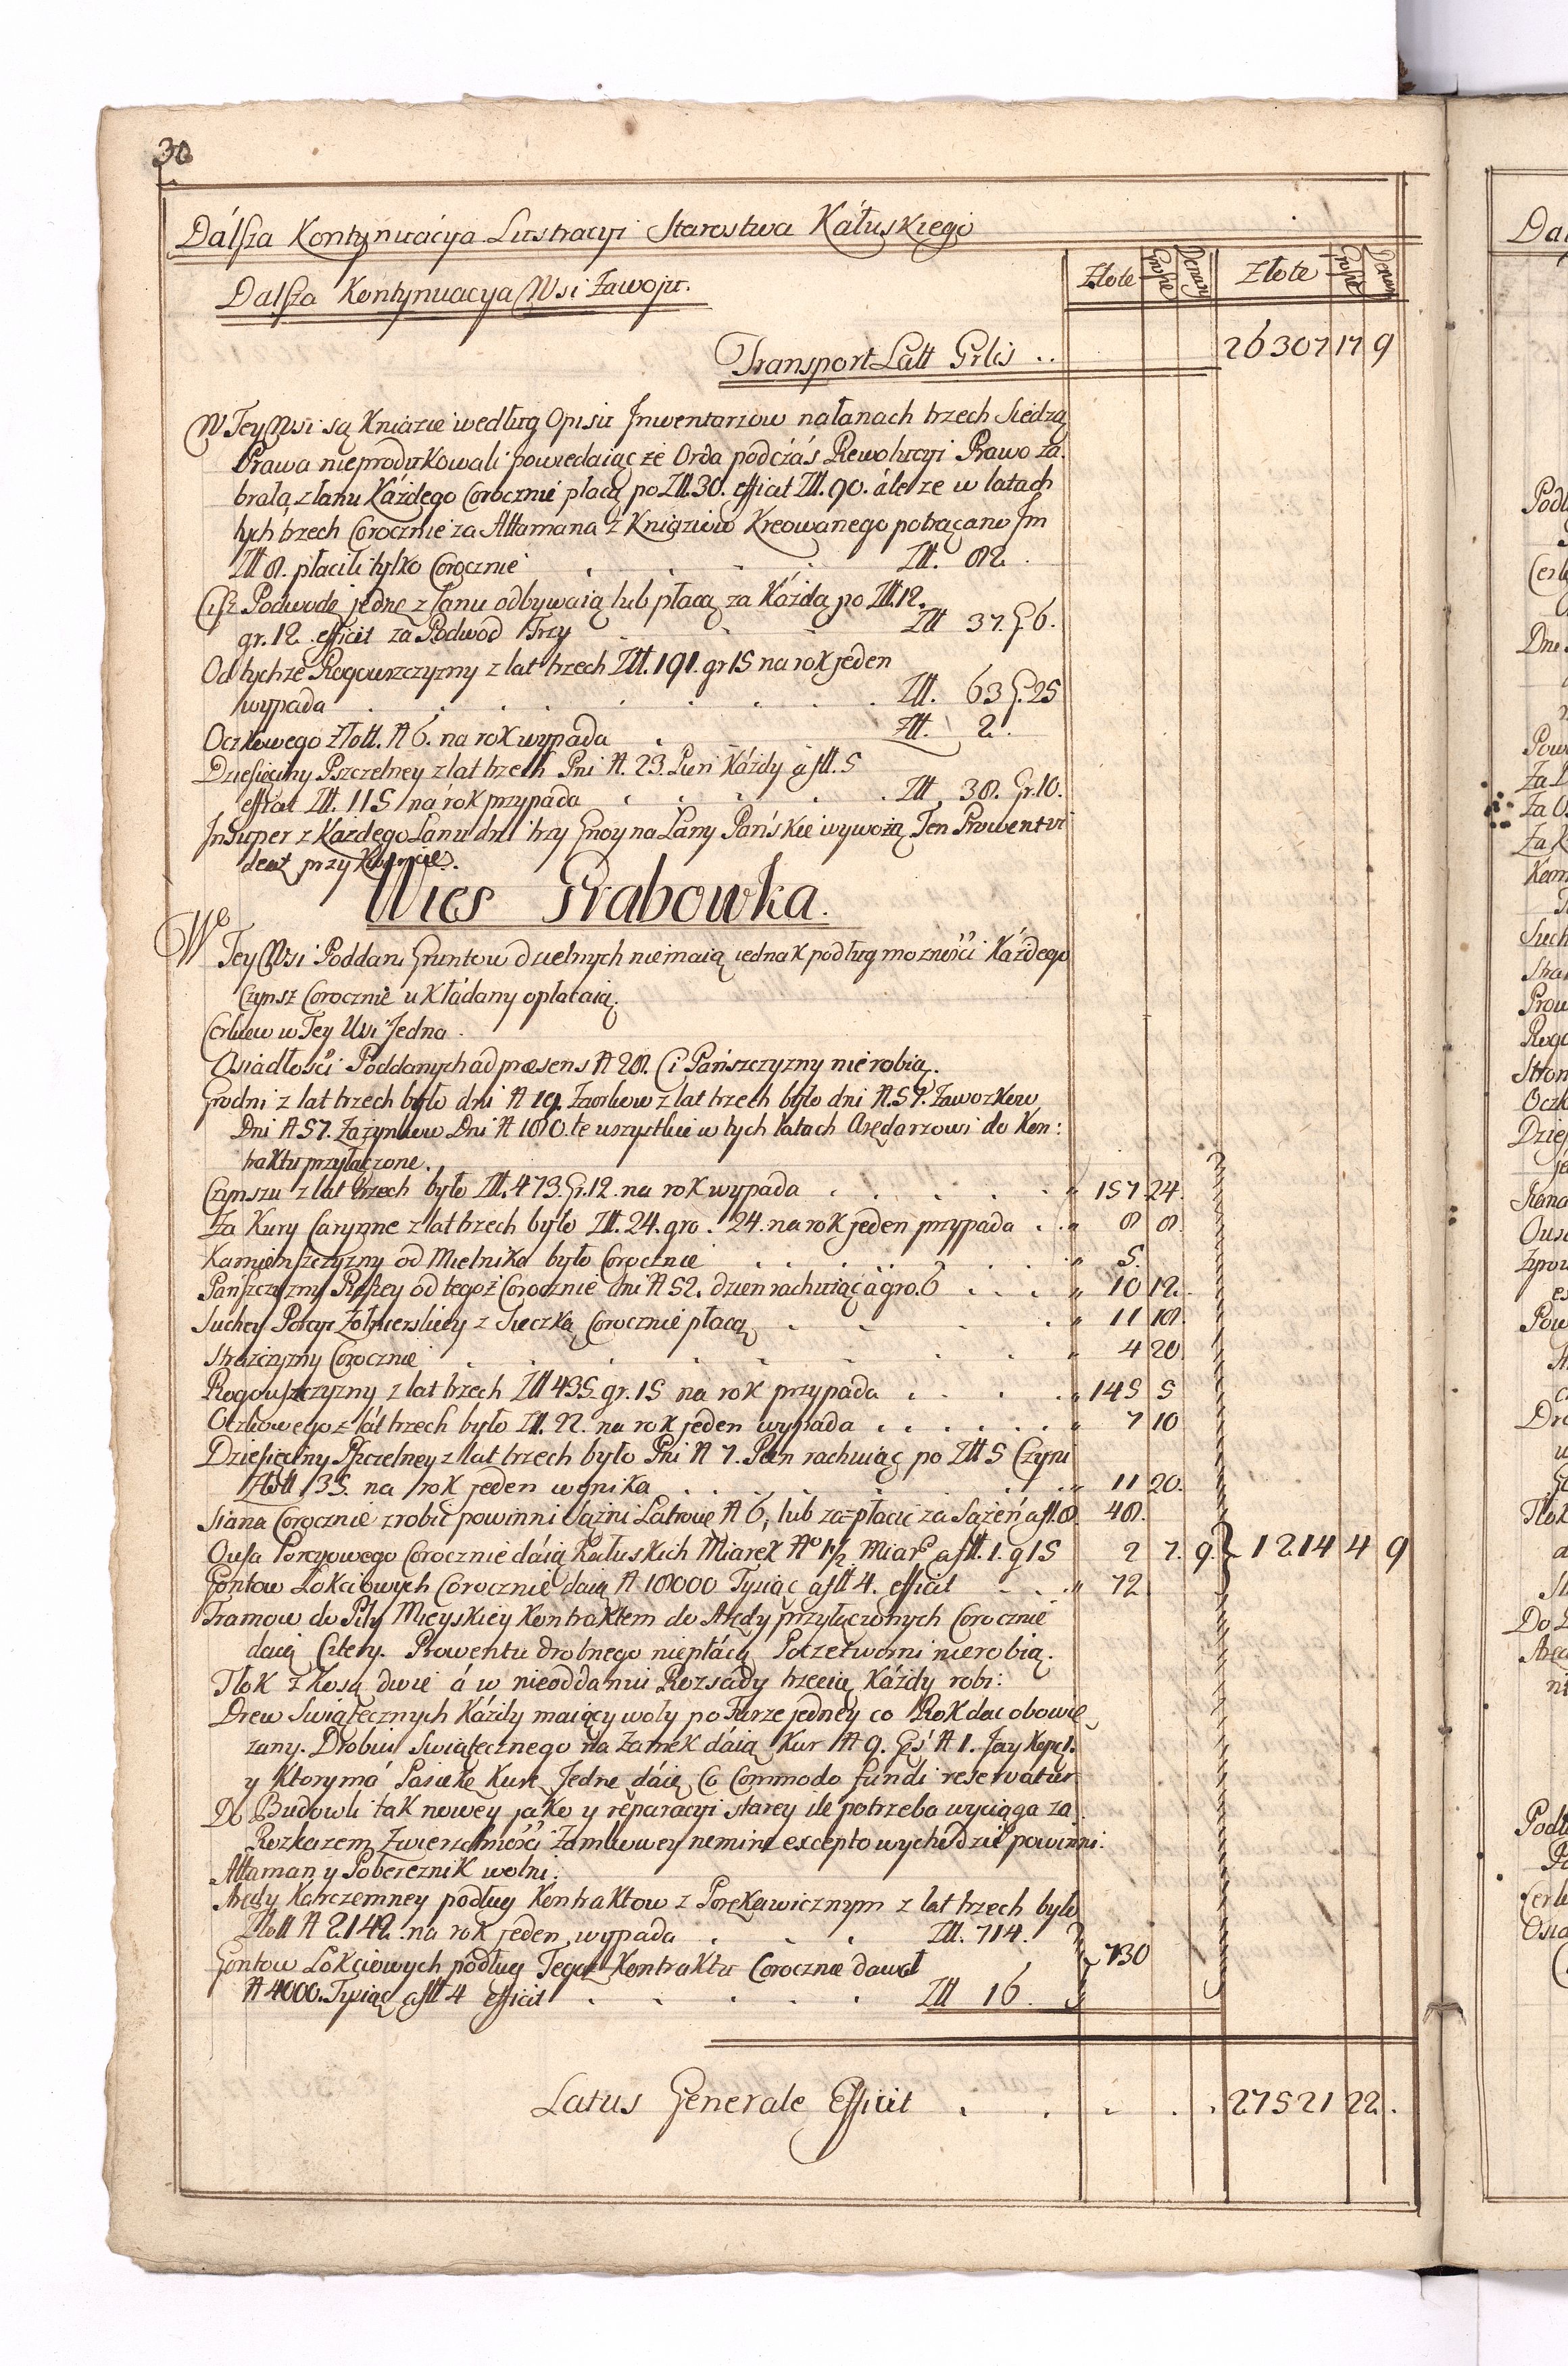 30
Dálsza Kontynuácya Lustracyi Starostwa Káłuskiego
Dalsza Kontynuacya Wsi Zawoju.
Złote Grosze Denary Złote Grosze Denary
Transport Latt Grlis .. 26307 17 9
W Tey Wsi są Kniazie według Opisu Jnwentarzow na łanach trzech Siedzą
Prawa nieprodukowali powiedaiąc że Orda podczás Rewolucyi Prawo za
brala, z łanu Káżdego Corocznie płacą po Złł. 30. efficit Złł. 90. ále że w latach
tych trzech Corocznie za Attamana z Kniaziow Kreowanego potrącano Jm
Złł 8. płacili tylko Corocznie . . . . Złł. 82.
Ciż Podwodę jednę z łanu odbywaią lub płacą za Káżdą po Złł. 12.
gr. 12. efficit za Podwod Trzy . . . Złł 37. G 6.
Od tychże Rogowszczyzny z lat trzech Złł. 191. gr 15 na rok jeden
wypada . . . . . . . . Złł. 63 G. 25
Oczkowego Złott. № 6. na rok wypada . . Złł. 2.
Dziesięciny Pszczelney z lat trzech Pni №. 23. Pień Káżdy á fll. 5
effciat Złł. 115 na rok przypada . . . . . Złł 38. Gr. 10.
Jnsuper z Każdego Lanu dni trzy Gnoy na Łany Pańskie wywożą Ten Prowent vi
deat przy Kwarcie.
Wies Grabowka.
We
Tey Wsi Poddani Gruntow dzielnych nie maią iednak podług mozności Káżdego
Czynsz Corocznie ukłádany opłacaią.
Cerkiew w Tey Wsi Jedna.
Osiadłości Poddanych ad præsens № 28. Ci Pańszczyzny nie robią.
Grodni z lat trzech było dni № 19. Zaorkow z lat trzech było dni №. 57. Zawozkow
Dni № 57. Zażynkow Dni № 180. te wszystkie w tych latach Arędarzowi do Kon:
traktu przyłączone.
Czynszu z lat trzech było Złł. 473. Gr. 12. na rok wypada . . . . „ 157 24.
Za Kury Czynne z lat trzech było Złł. 24. gro. 24. na rok jeden przypada . . „ 8 8.
Kamienszczyzny od Mielnika było Corocznie . . . . „ 5.
Pańszczyzny Pieszey od tegoż Corocznie dni № 52. dzien rachuiąc á gro. 6 . . . „ 10 12.
Suchey Porcyi Zołnierskiey z Sieczką Corocznie płacą . . . . „ 11 18.
Strożczyzny Corocznie . . . . . . . „ 4 20.
Rogowszczyzny z lat trzech Złł 435. gr. 15 na rok przypada . . . . „ 145 5
Oczkowego z lát trzech było Złł. 22. na rok jeden wypada . . . . . „ 7 10
Dziesięciny Pszczelney z lat trzech było Pni № 7. Pien rachuiąc po Złł 5 Czyni
Złott 35. na rok jeden wynika . . . . . . „ 11 20.
Siana Corocznie zrobić powinni Sążni Latrowe № 6, lub za=płacić za Sążeń á fll. 8. 48.
Owsa Porcyowego Corocznie dáią Kałuskich Miarek №o 1½ Miarę á fll. 1. g 15 2 7. 9. } 1214 4 9
Gontow Łokciowych Corocznie daią № 18000 Tysiąc á fll 4. efficit . . . „ 72
Tramow do Piły Mieyskiey Kontraktem do Arędy przyłączonych Corocznie
daią Cztery. Prowentu drobnego niepłácą Poczetworni nierobią.
Tłok z Kosą dwie á w nieoddaniu Rozsády trzecią Káżdy robi:
Drew Swiątecznych Káżdy maiący woły po Furze jedney co Rok dac obowię
zany. Drobiu Swiątecznego na Zamek dáią Kur № 9. Gęś № 1. Jay Kopę 1.
y Ktory má Pasiekę Kurę Jednę dáie Co Commodo fundi reservatur
Do Budowli tak nowey jako y reparacyi starey ile potrzeba wyciąga za
Rozkazem Zwierzchności Zamkowey nemine excepto wychodzić powinni:
Attaman y Pobereznik wolni:
Arędy Karczemney podług Kontraktow z Porękawicznym z lat trzech było
Złott № 2142. na rok jeden wypada . . . Złł. 714.
} 730
Gontow Łokciowych podług Tegoż Kontraktu Corocznie dawał
№ 4000. Tysiąc á fll 4 efficit . . . . . Złł 16.
Latus Generale Efficit . . . . . 27521 22.